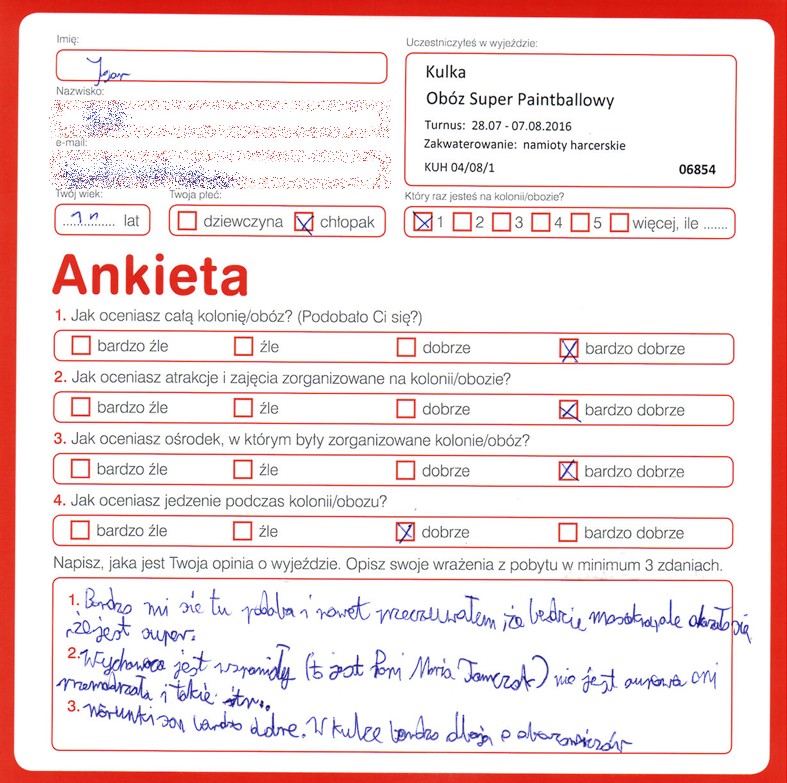 Imię:
Uczestniczyłeś w wyjeździe:
Igor
Kulka
Obóz Super Paintballowy
Turnus: 28.07 - 07.08.2016
Zakwaterowanie: namioty harcerskie
KUH 04/08/1 06854
Nazwisko:
e-mail:
Twój wiek:
lat
Twoja płeć:
dziewczyna chłopak
Który raz jesteś na kolonii/obozie?
1 2 3 4 5 więcej, ile .......
Ankieta
1. Jak oceniasz całą kolonię/obóz? (Podobało Ci się?)
bardzo źle źle dobrze bardzo dobrze
2. Jak oceniasz atrakcje i zajęcia zorganizowane na kolonii/obozie?
bardzo źle źle dobrze bardzo dobrze
3. Jak oceniasz ośrodek, w którym były zorganizowane kolonie/obóz?
bardzo źle źle dobrze bardzo dobrze
4. Jak oceniasz jedzenie podczas kolonii/obozu?
bardzo źle źle dobrze bardzo dobrze
Napisz, jaka jest Twoja opinia o wyjeździe. Opisz swoje wrażenia z pobytu w minimum 3 zdaniach.
1. Bardzo mi sie tu podoba i nawet przeczuwałem że bedzie okazało się
że jest super.
2. Wychowawca jest wspaniały (to jest Pani Maria Tomczak) nie jest surowa ani
przemądrzała i takie
3. warunki są bardzo dobre. W kulce bardzo dbają o obozowiczów